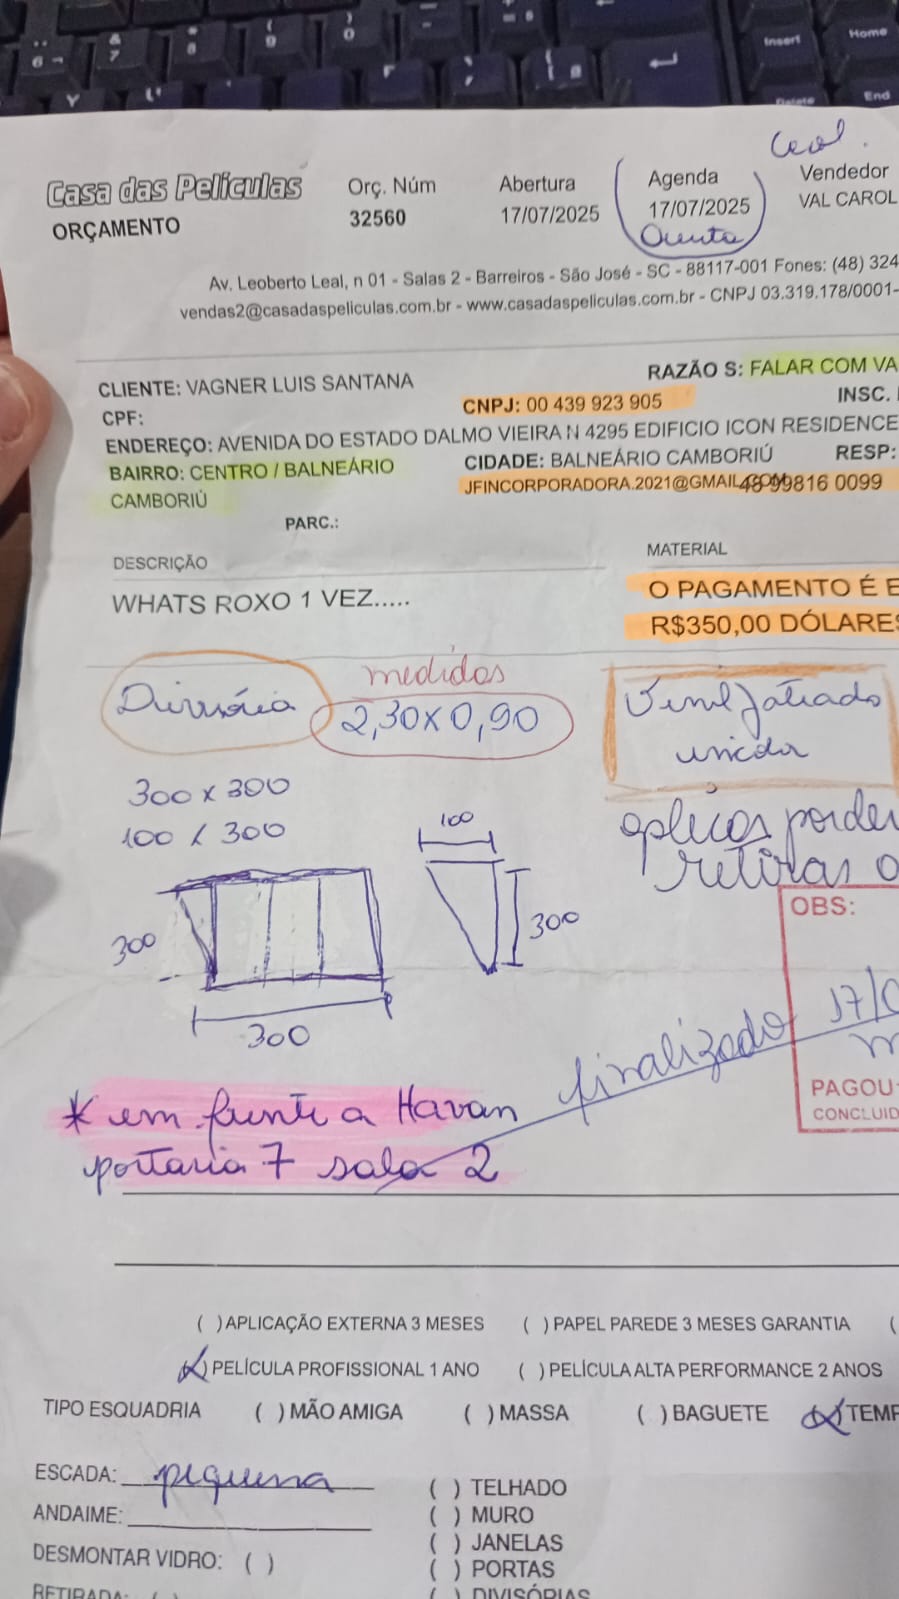 Casa das Películas
ORÇAMENTO
Orç. Núm
32560
Abertura
17/07/2025
Agenda
17/07/2025
Quinta
Vendedor
VAL CAROL
Av. Leoberto Leal, n 01 - Salas 2 - Barreiros - São José - SC - 88117-001 Fones: (48) 324
vendas2@casadaspeliculas.com.br - www.casadaspeliculas.com.br - CNPJ 03.319.178/0001-
CLIENTE: VAGNER LUIS SANTANA
RAZÃO S: FALAR COM VA
CPF:
CNPJ: 00 439 923 905
INSC.
ENDEREÇO: AVENIDA DO ESTADO DALMO VIEIRA N 4295 EDIFICIO ICON RESIDENCE
BAIRRO: CENTRO / BALNEÁRIO
CAMBORIÚ
CIDADE: BALNEÁRIO CAMBORIÚ
RESP:
JFINCORPORADORA.2021@GMAIL.COM 48 99816 0099
PARC.:
DESCRIÇÃO
MATERIAL
WHATS ROXO 1 VEZ.....
O PAGAMENTO É E
R$350,00 DÓLARES
medidas
Divisória
2,30x0,90
Vinil jateado
incolor
300 x 300
100 / 300
aplicar
retiras
100
300
300
300
OBS:
finalizado 17/0
PAGOU
CONCLUID
* em frente a Havan
portaria 7 sala 2
( ) APLICAÇÃO EXTERNA 3 MESES
( ) PAPEL PAREDE 3 MESES GARANTIA
(
(X) PELÍCULA PROFISSIONAL 1 ANO
( ) PELÍCULA ALTA PERFORMANCE 2 ANOS
TIPO ESQUADRIA
( ) MÃO AMIGA
( ) MASSA
( ) BAGUETE
(X) TEMP
ESCADA: pequena
( ) TELHADO
ANDAIME:
( ) MURO
DESMONTAR VIDRO: ( )
( ) JANELAS
( ) PORTAS
RETIRADA: ( )
( ) DIVISÓRIAS